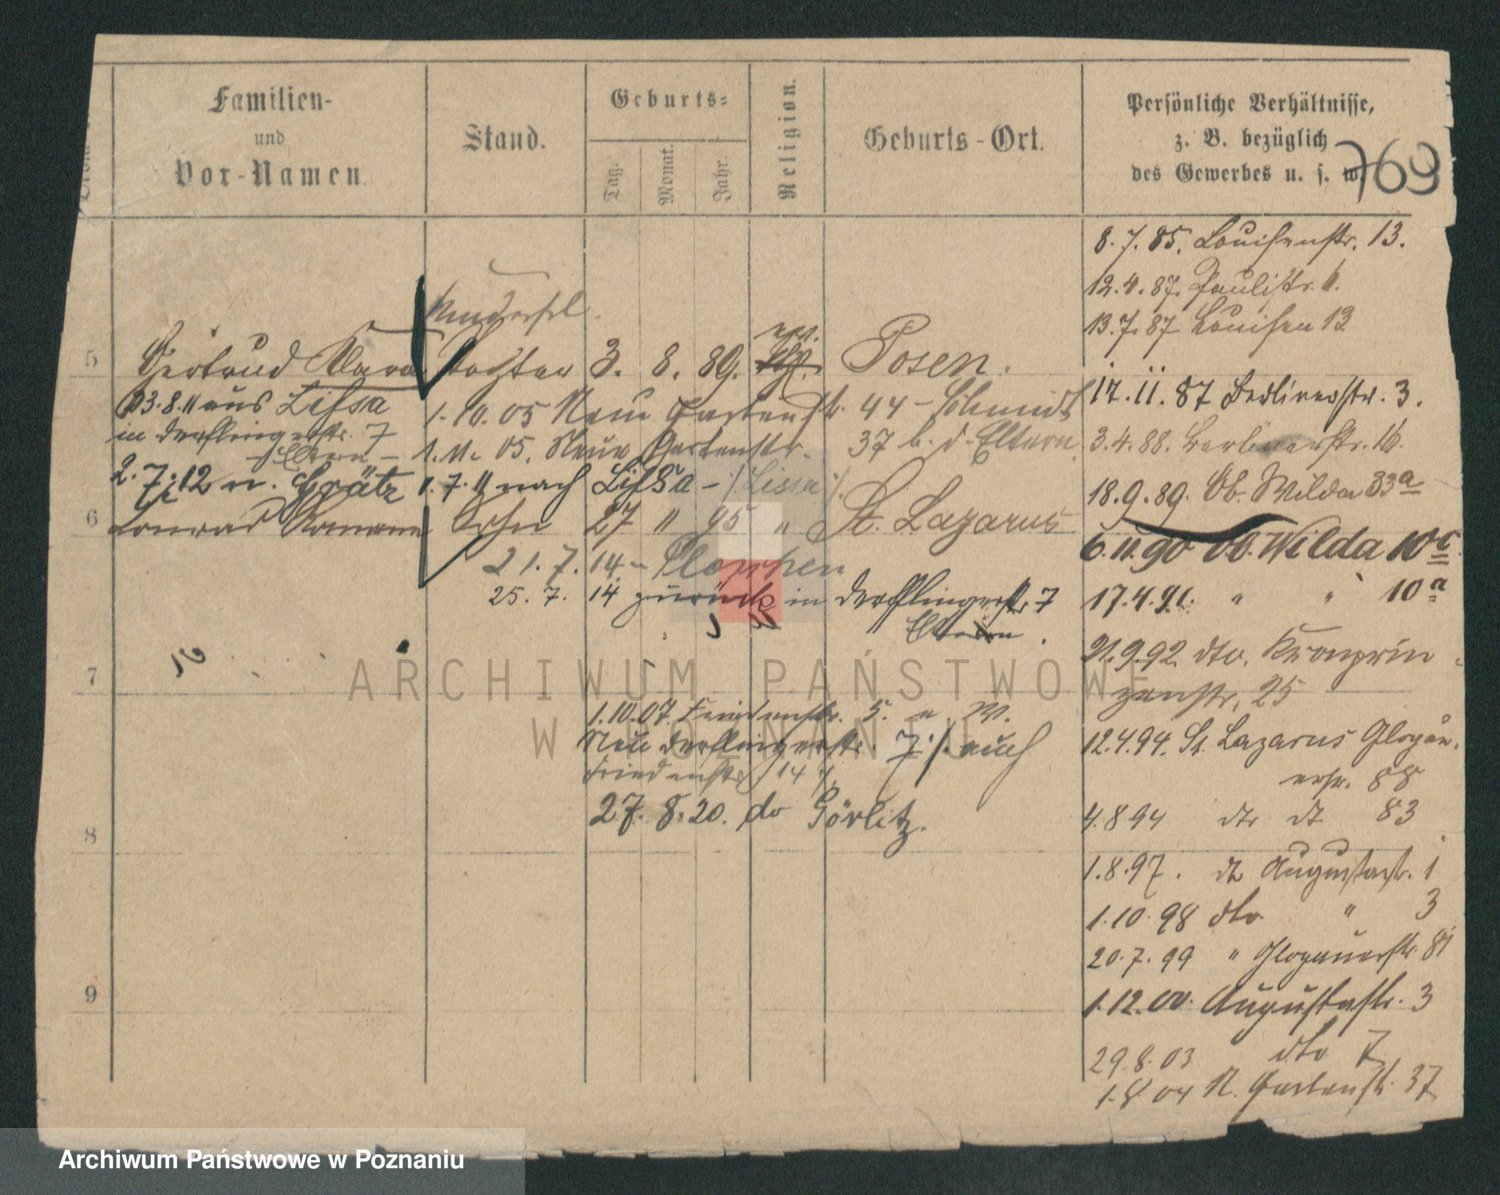 Familien-
und
Vor-Namen.
Stand.
Geburts-
Tag.
Monat.
Jahr.
Religion.
Geburts-Ort.
Persönliche Verhältnisse,
z. B. bezüglich
des Gewerbes u. s. w.
769
8.7.85. Louisenstr. 13.
12.4.87. Paulistr.
13.7.87 Louisen 13
5 Gertrud Clara Tochter 3. 8. 89. Posen.
17.11.87 Berlinerstr. 3.
23.8.11 aus Lissa
1.10.05 Neue Gartenstr. 44 - Schmidt
in Derfflingerstr. 7
Eltern -
1.11.05. Neue Gartenstr. 37 b. d. Eltern
3.4.88. Berlinerstr. 16.
2.7.12 n. Grätz
1.7.11 nach Lissa - (Lissa)
18.9.89. Ob. Wilda 33a
6 Conrad Romann Sohn 27 " 95 " St. Lazarus
6.11.90 Ob. Wilda 10c
21.7.14 - Pleschen
25.7.14 zurück in Derfflingerstr. 7
Eltern.
17.4.91. " " 10a
21.9.92 dto. Kronprin-
zenstr. 25
7
1.10.07. Friedenstr. 5. n. W.
Neu Derfflingerstr. 7 /. auch
Friedenstr. 14 /.
27.8.20. do Görlitz.
12.4.94. St. Lazarus Glogau-
erstr. 88
4.8.94 dto dt 83
8
1.8.97. dt Augustastr. 1
1.10.98 dto " 3
20.7.99 " Glogauerstr. 81
9
1.12.00. Augustastr. 3
29.8.03 dto 7
1.8.04 N. Gartenstr. 37
ARCHIWUM PAŃSTWOWE
W POZNANIU
Archiwum Państwowe w Poznaniu